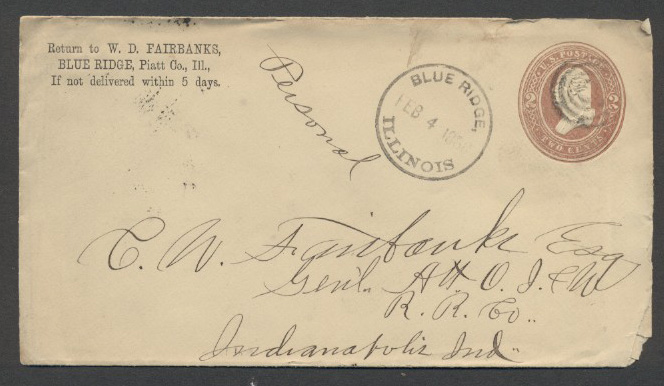 Return to W. D. FAIRBANKS,
BLUE RIDGE, Piatt Co., Ill.,
If not delivered within 5 days.
Personal
BLUE RIDGE,
FEB 4
ILLINOIS
U.S. POSTAGE
2 2
TWO CENTS
C. W. Fairbanks Esq
Genl. Att O. I. & W
R. R. Co.
Indianapolis Ind